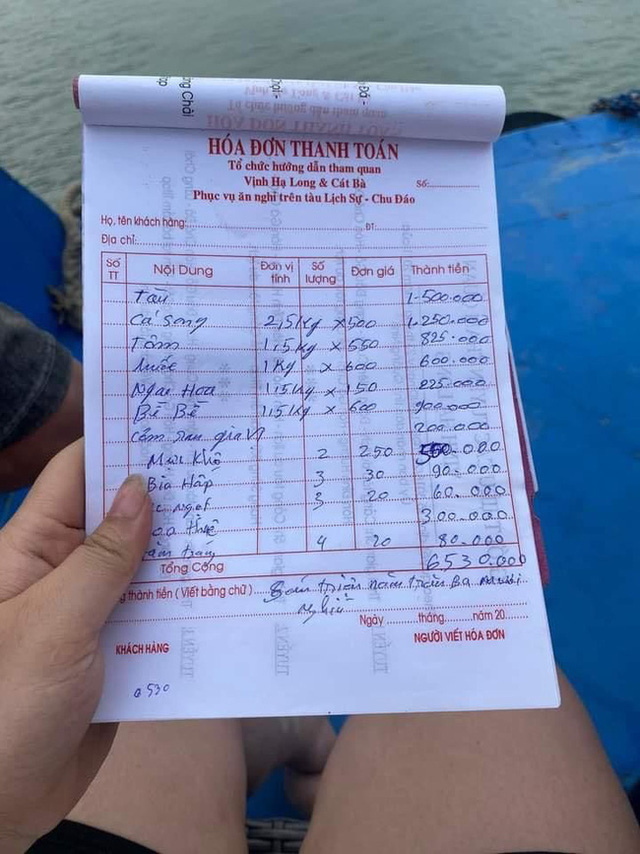 HÓA ĐƠN THANH TOÁN
Tổ chức hướng dẫn tham quan
Vịnh Hạ Long & Cát Bà Số:
Phục vụ ăn nghỉ trên tàu Lịch Sự - Chu Đáo
Họ, tên khách hàng: ĐT:
Địa chỉ:
Số TT Nội Dung Đơn vị tính Số lượng Đơn giá Thành tiền
Tàu 1.500.000
Cá song 2,5kg x 500 1.250.000
Tôm 1,5kg x 550 825.000
1kg x 600 600.000
Ngao Hoa 1,5kg x 150 225.000
Bề Bề 1,5kg x 600 900.000
Cơm rau gia vị 200.000
Mực Khô 2 250 500.000
Bia Hấp 3 30 90.000
ngọt 3 20 60.000
300.000
4 20 80.000
Tổng Cộng 6530.000
thành tiền (Viết bằng chữ) Sáu triệu năm trăm Ba mươi
nghìn
Ngày tháng năm 20
KHÁCH HÀNG NGƯỜI VIẾT HÓA ĐƠN
6530